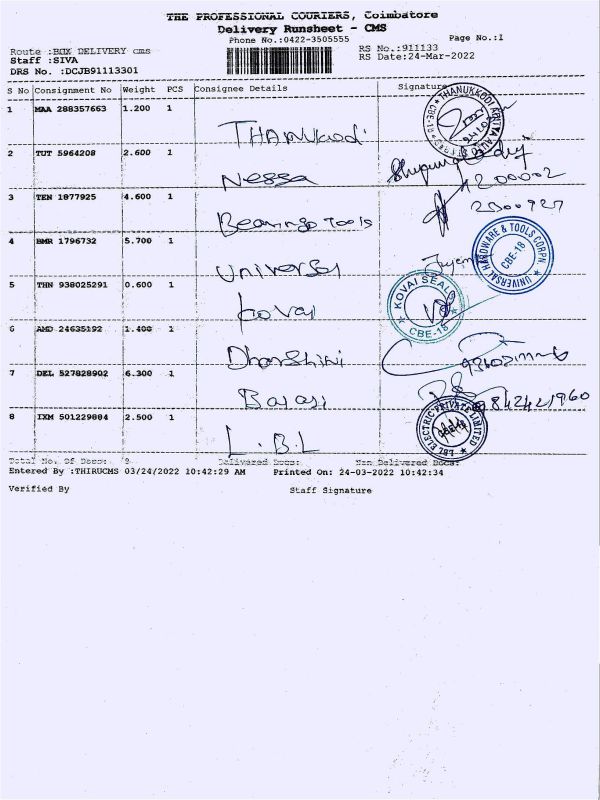 THE PROFESSIONAL COURIERS, Coimbatore
Delivery Runsheet - CMS
Phone No.:0422-3505555 Page No.:1
Route :BOX DELIVERY cms RS No.:911133
Staff :SIVA RS Date:24-Mar-2022
DRS No. :DCJB91113301
S No Consignment No Weight PCS Consignee Details Signature
1 MAA 288357663 1.200 1 THANUKKodi
2 TUT 5964208 2.600 1 Nessa
3 TEN 1877925 4.600 1 Bearings Tools
4 BMR 1796732 5.700 1 Universal
UNIVERSAL HARDWARE & TOOLS CORPN. CBE-18
5 THN 938025291 0.600 1 Kovai
KOVAI SEAL CBE-18
6 AMD 24635192 1.400 1 Dharshini
7 DEL 527828902 6.300 1 Balaji 9842421960
8 IXM 501229884 2.500 1 L.B.L
LBL ELECTRIC PRIVATE LIMITED
Total No. Of Docs: 8 Delivered Docs: Non Delivered Docs:
Entered By :THIRUCMS 03/24/2022 10:42:29 AM Printed On: 24-03-2022 10:42:34
Verified By Staff Signature